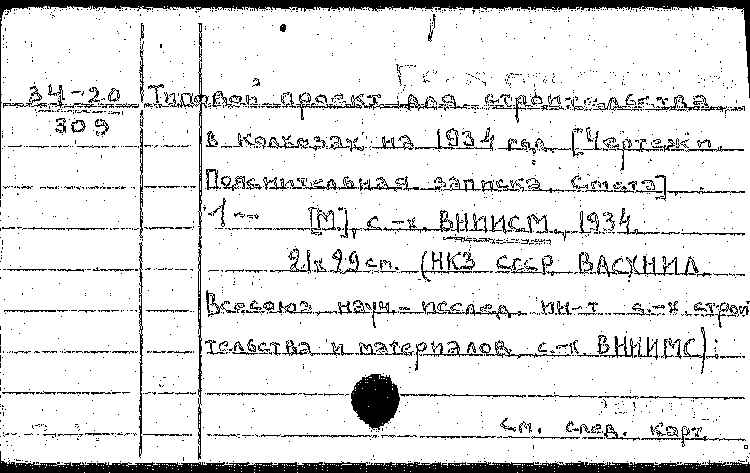 34-20 Типовой проект для строительства
309
в колхозах на 1934 год [Чертежи.
Пояснительная записка. Смета].
1— [М], с.-х. ВНИИСМ, 1934.
21х29 см. (НКЗ СССР ВАСХНИЛ.
Всесоюз. науч.-исслед. ин-т с.-х. строи
тельства и материалов с.-х. ВНИИМС):
см. след. карт.